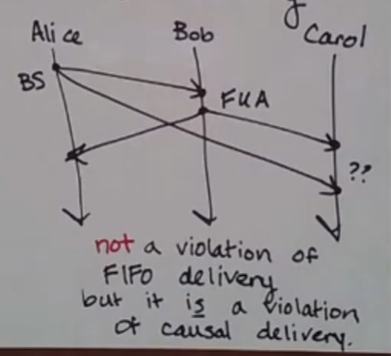 Alice Bob Carol
BS
FUA
??
not a violation of
FIFO delivery
but it is a violation
of causal delivery.